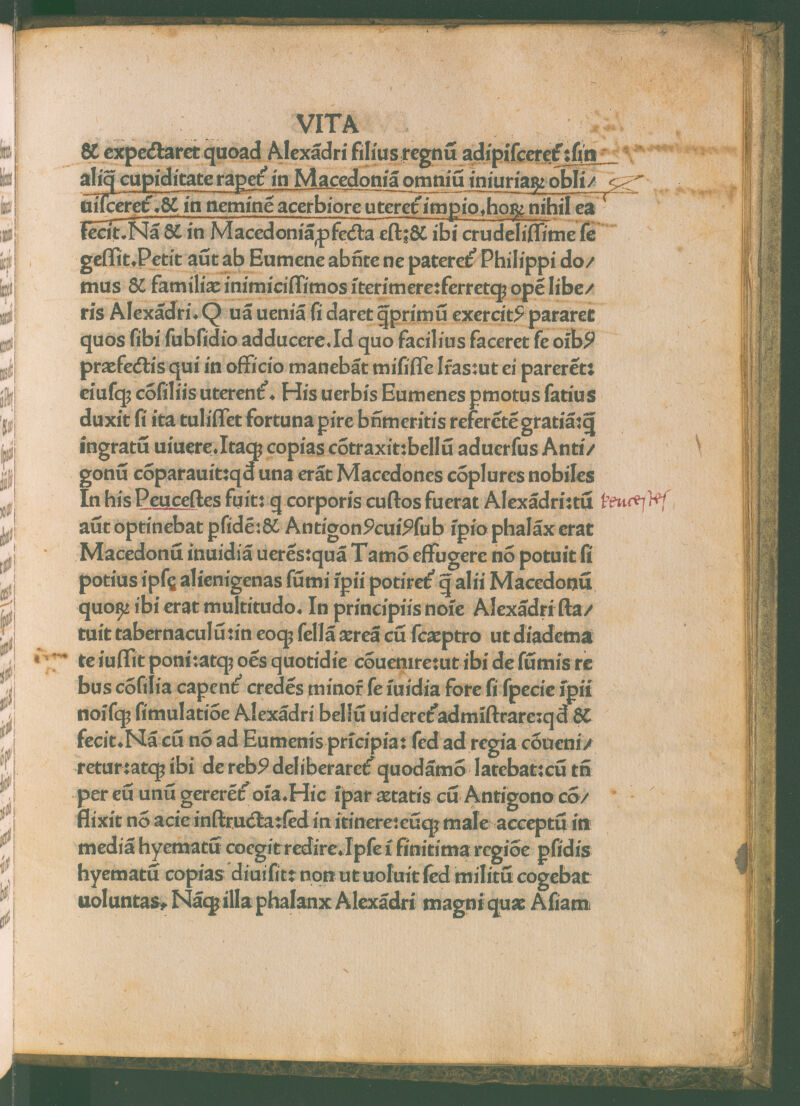 VITA
& expectaret quoad Alexãdri filius regnũ adipiſcereť:ſin
aliq̃ cupiditate rapeť in Macedoniã omniũ iniuriaꝝ obli/
uiſcereť.& in neminẽ acerbiore utereť impio.hoꝝ nihil ea
fecit.Nã & in Macedoniã ꝓfecta eſt;& ibi crudeliſſime ſe
geſſit.Petit aũt ab Eumene abñte ne patereť Philippi do/
mus & familiæ inimiciſſimos ĩterimere:ferretqꝫ opẽ libe/
ris Alexãdri.Q uã ueniã ſi daret q̃primũ exercitꝰ pararet
quos ſibi ſubſidio adducere.Id quo facilius faceret ſe oĩbꝰ
præfectis qui in officio manebãt miſiſſe lr̃as:ut ei parerẽt:
eiuſqꝫ cõſiliis uterenť. His uerbis Eumenes pmotus ſatius
duxit ſi ita tuliſſet fortuna pire bñmeritis referẽtẽ gratiã:q̃
ingratũ uiuere.Itaqꝫ copias cõtraxit:bellũ aduerſus Anti/
gonũ cõparauit:qd̃ una erãt Macedones cõplures nobiles
In his Peuceſtes fuit: q corporis cuſtos fuerat Alexãdri:tũ
Peuceſteſ
aũt optinebat pſidẽ:& Antigonꝰcuiꝰſub ĩpio phalãx erat
Macedonũ inuidiã uerẽs:quã Tamõ effugere nõ potuit ſi
potius ipſę alienigenas ſũmi ĩpii potireť q̃ alii Macedonũ
quoꝝ ibi erat multitudo. In principiis noĩe Alexãdri ſta/
tuit tabernaculũ:in eoqꝫ ſellã æreã cũ ſcæptro ut diadema
te iuſſit poni:atqꝫ oẽs quotidie cõuenire:ut ibi de ſũmis re
bus cõſilia capenť credẽs minor̃ ſe ĩuidia fore ſi ſpecie ĩpii
noĩſqꝫ ſimulatiõe Alexãdri bellũ uidereť admĩſtrare:qd̃ &
fecit.Nã cũ nõ ad Eumenis prĩcipia: ſed ad regia cõueni/
retur:atqꝫ ibi de rebꝰ deliberareť quodãmõ latebat:cũ tñ
per eũ unũ gererẽť oĩa.Hic ĩpar ætatis cũ Antigono cõ/
flixit nõ acie inſtructa:ſed in itinere:eũqꝫ male acceptũ in
mediã hyematũ coegit redire.Ipſe ĩ finitima regiõe pſidis
hyematũ copias diuiſit: non ut uoluit ſed militũ cogebat
uoluntas. Nãqꝫ illa phalanx Alexãdri magni quæ Aſiam